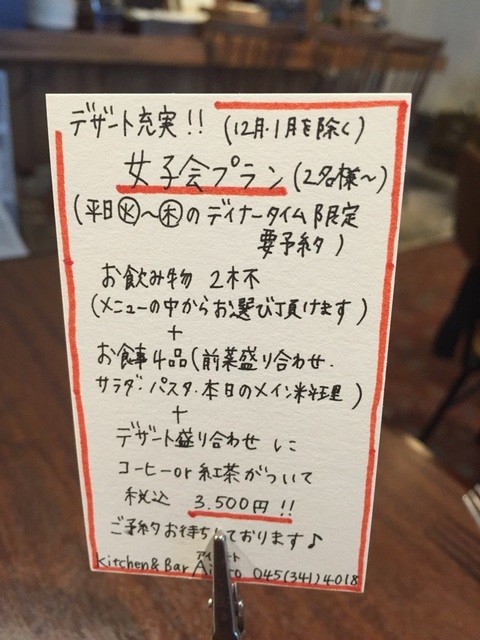 デザート充実!! (12月・1月を除く)
女子会プラン (2名様〜)
(平日㊋〜㊍のディナータイム限定
要予約)
お飲み物 2杯
(メニューの中からお選び頂けます)
+
お食事4品(前菜盛り合わせ・
サラダ・パスタ・本日のメイン料理)
+
デザート盛り合わせ に
コーヒーor紅茶がついて
税込 3.500円!!
ご予約お待ちしております♪
Kitchen&Bar 045(341)4018